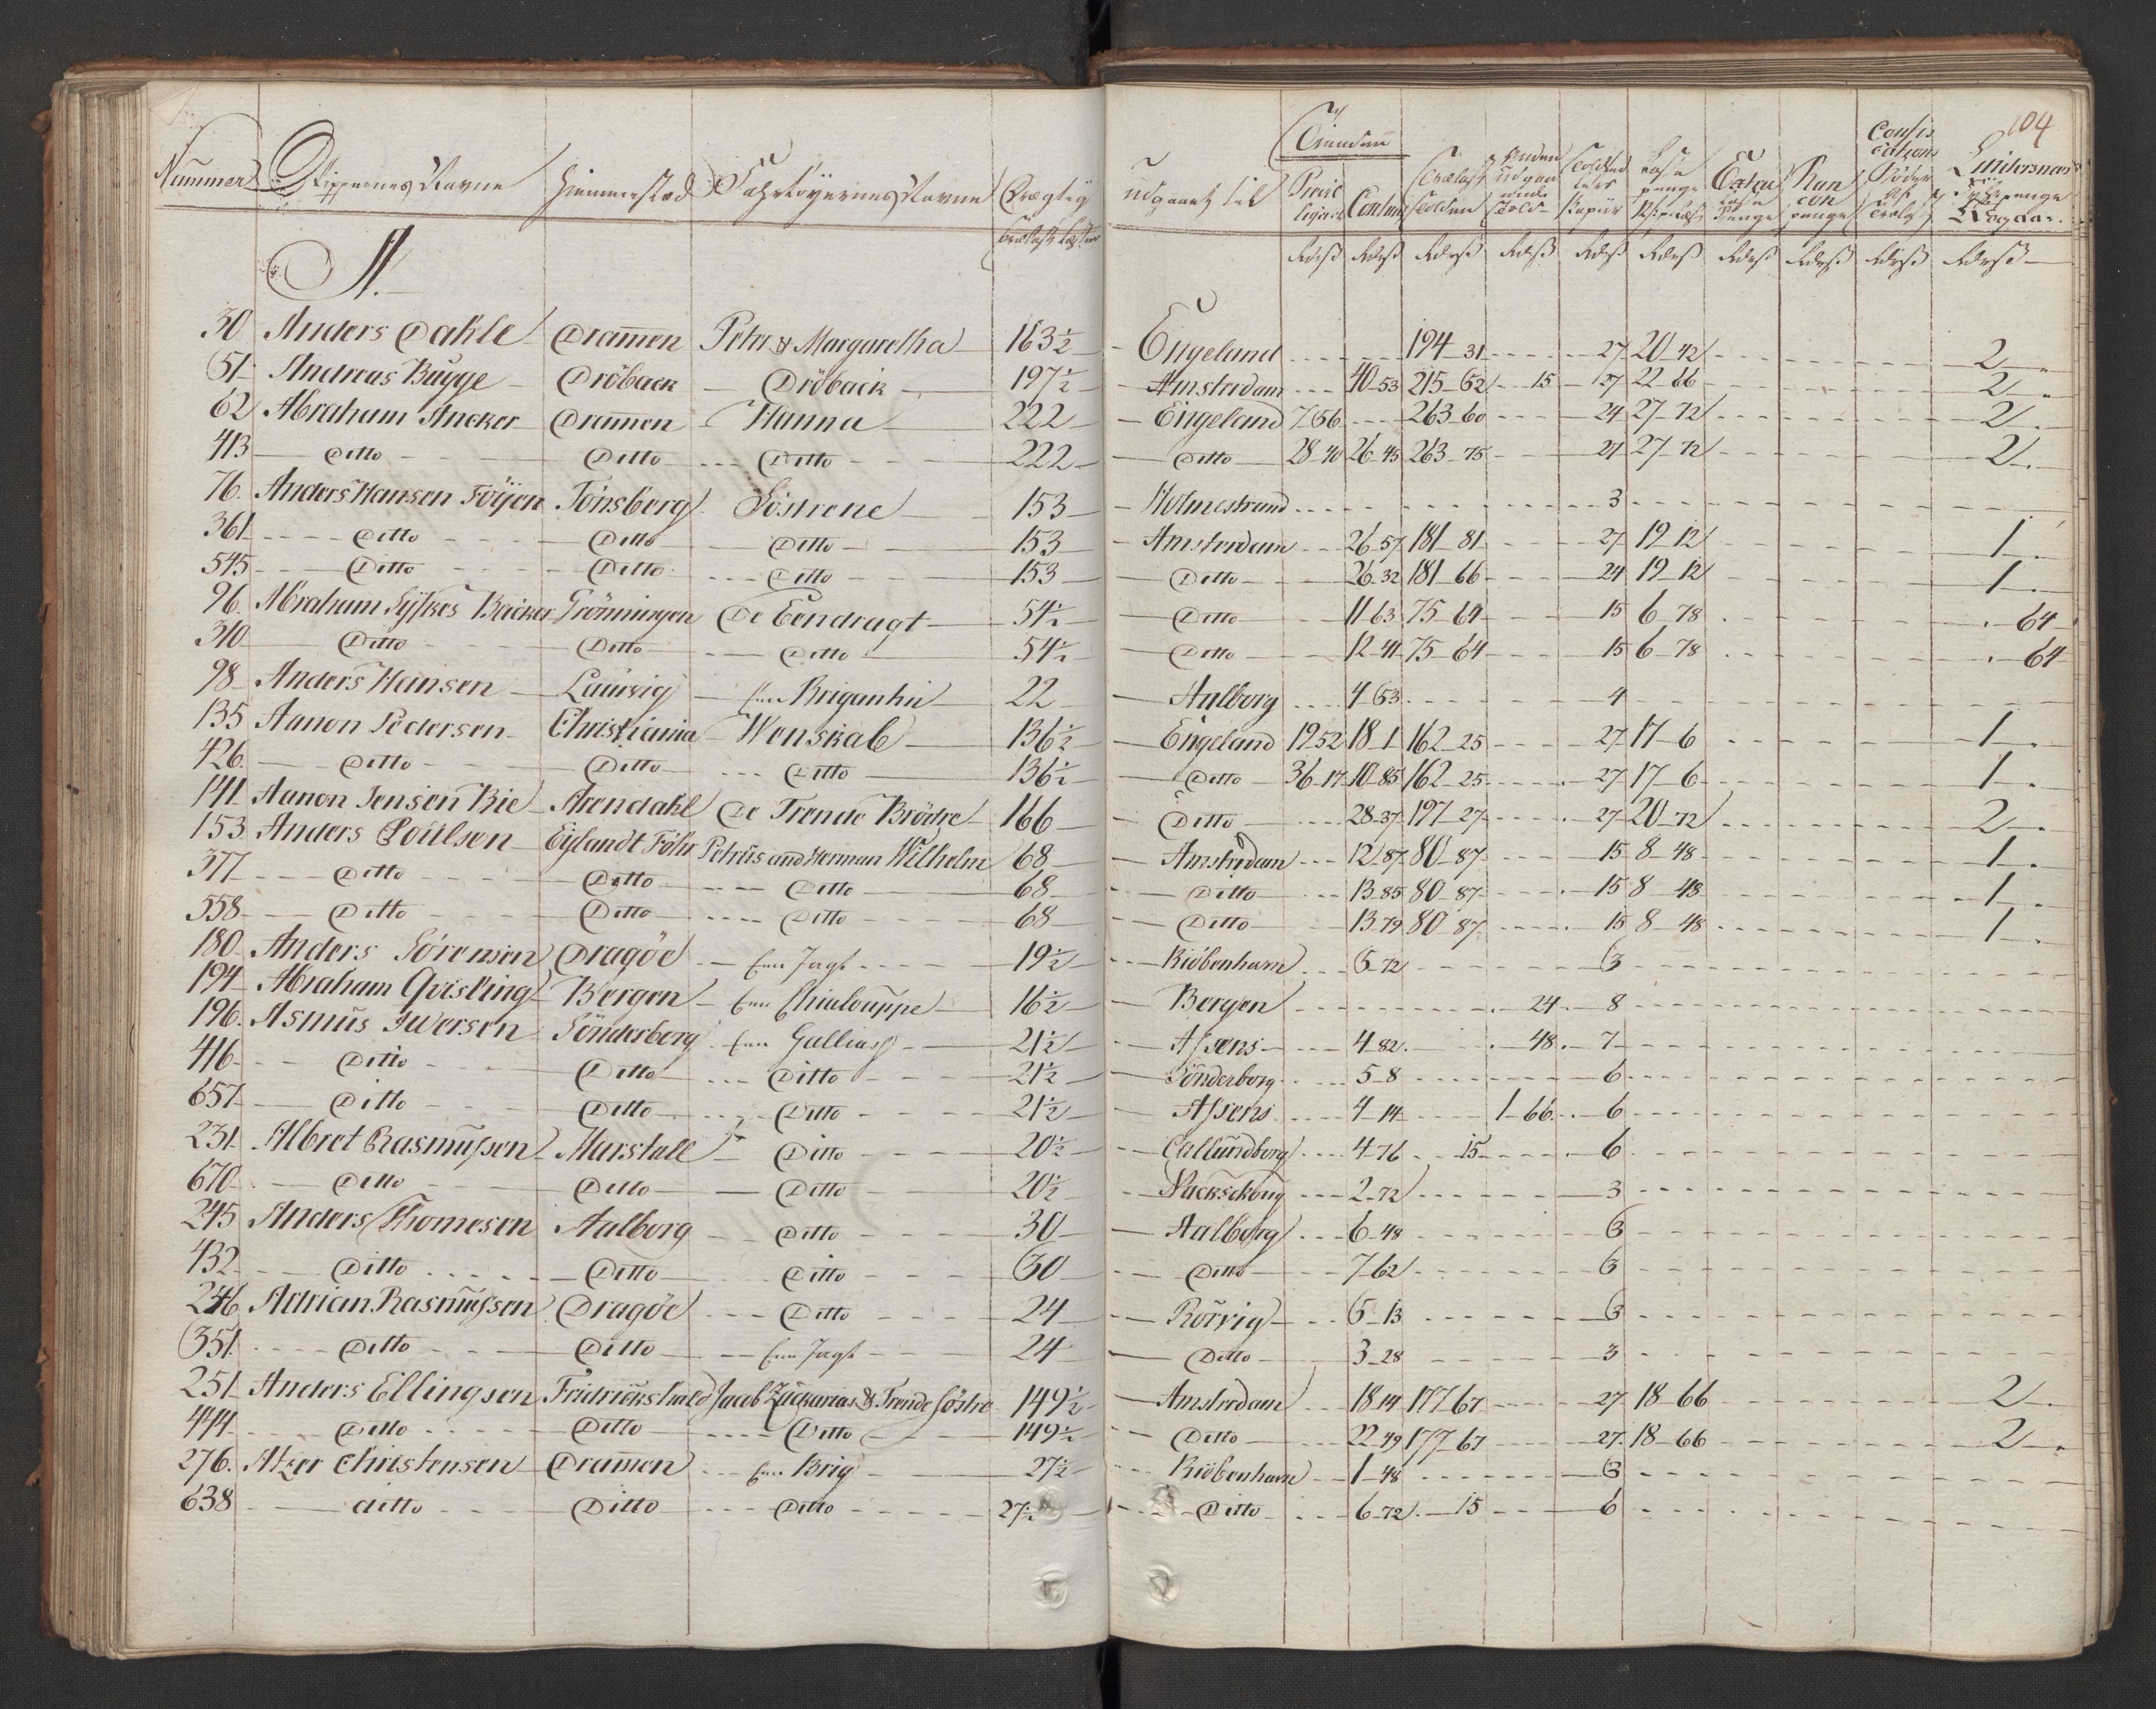 104
Nummer Skippernes Navne Hiemmestæd Fahrtöyernes Navne Drægtig Trælast læster udgaaet til Privilegiret Contant Trælast Tolden Anden udgaaende Told Lastepenge Extra Penge Rancon penge Confiscations
A.
50 Anders Dahle Dram̄en Peter & Margaretha 163½ Engeland 194-31 27 20-42 2
51 Andreas Bugge Dröback Dröback 197½ Amsterdam 40-53 215-62 15 27 22-66 2
62 Abraham Ancker Dram̄en Hanna 222 Engeland 7-56 263-60 24 27-72 2
413 Ditto Ditto Ditto 222 Ditto 28-40 26-45 263-75 27 27-72 2
76. Anders Hansen Föÿen Tönsberg Söstrene 153 Holmestrand 3
361 Ditto Ditto Ditto 153 Amsterdam 26-57 181-81 27 19-12 1
545 Ditto Ditto Ditto 153 Ditto 26-32 181-66 24 19-12 1
96. Abraham Backer Grönningen De Eendragt 54½ Ditto 11-63 75-64 15 6-78 64
310 Ditto Ditto Ditto 54½ Ditto 12-41 75-64 15 6-78 64
98 Anders Hansen Laurvig Een Brigantin 22 Aalborg 4-53 4
135 Aanon Pedersen Christiania Wenskab 136½ Engeland 19-52 18-1 162-25 27 17-6 1
426. Ditto Ditto Ditto 136½ Ditto 36-17 10-85 162-25 27 17-6 1
141 Aanon Jensen Bie Arendahl De Trende Brödre 166 Ditto 28-37 197-27 27 20-72 2
153 Anders Poulsen Eylandt Föhr Petrus and Herman Wilhelm 68 Amsterdam 12-87 80-87 15 8-48 1
377 Ditto Ditto Ditto 68 Ditto 13-85 80-87 15 8-48 1
558 Ditto Ditto Ditto 68 Ditto 13-79 80-87 15 8-48 1
180 Anders Sörensen Dragöe Een Jagt 19½ Kiöbenhavn 5-72 3
194 Abraham Qvisling Bergen Een Chialouppe 16½ Bergen 24 8
196. Asmus Iwersen Sönderborg Een Galliass 21½ Assens 4-82 48 7
416 Ditto Ditto Ditto 21½ Sönderborg 5-8 6
657 Ditto Ditto Ditto 21½ Assens 4-14 1-66 6
231. Albret Rasmussen Marstall Ditto 20½ Callundborg 4-76 15 6
670 Ditto Ditto Ditto 20½ Nackschoug 2-72 3
245 Anders Thomesen Aalborg Ditto 30 Aalborg 6-48 3
432 Ditto Ditto Ditto 30 Ditto 7-62 3
246 Adrian Rasmussen Dragöe Ditto 24 Rörvig 5-13 3
351. Ditto Ditto Een Jagt 24 Ditto 3-28 3
251 Anders Ellingsen Fridrickshald Jacob Zackarias & Trende Söstre 149½ Amsterdam 18-14 177-67 27 18-66 2
444 Ditto Ditto Ditto 149½ Ditto 22-49 177-67 27. 18-66 2
276. Atzer Christensen Dram̄en Een Brig 27½ Kiöbenhavn 1-48 3
638 ditto Ditto Ditto 27½ Ditto 6-72 15 6